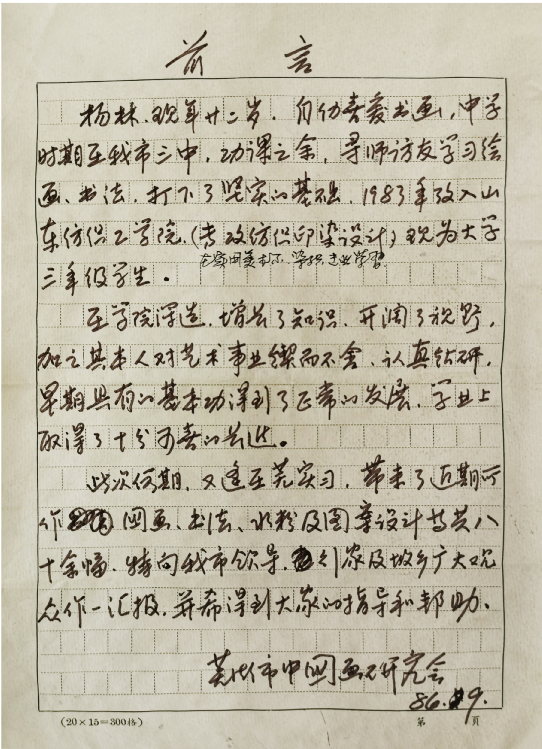 前言
杨林、现年廿二岁，自幼喜爱书画，中学
时期在我市三中，功课之余，寻师访友学习绘
画、书法，打下了坚实的基础。1983年考入山
东纺织工学院，(专攻纺织印染设计)现为大学
学习
三年级学生。
在学院深造，增长了知识，开阔了视野，
加之其本人对艺术事业锲而不舍、认真钻研，
早期具有的基本功得到了正常的发展，学业上
取得了十分可喜的长进。
此次假期，又逢在芜实习，带来了近期所
作国画、书法、水粉及图案设计等共八
十余幅，特向我市领导、行家及故乡广大观
众作一汇报，并希得到大家的指导和邦助。
芜湖市中国画研究会
86.9.
(20×15=300格)
第 页